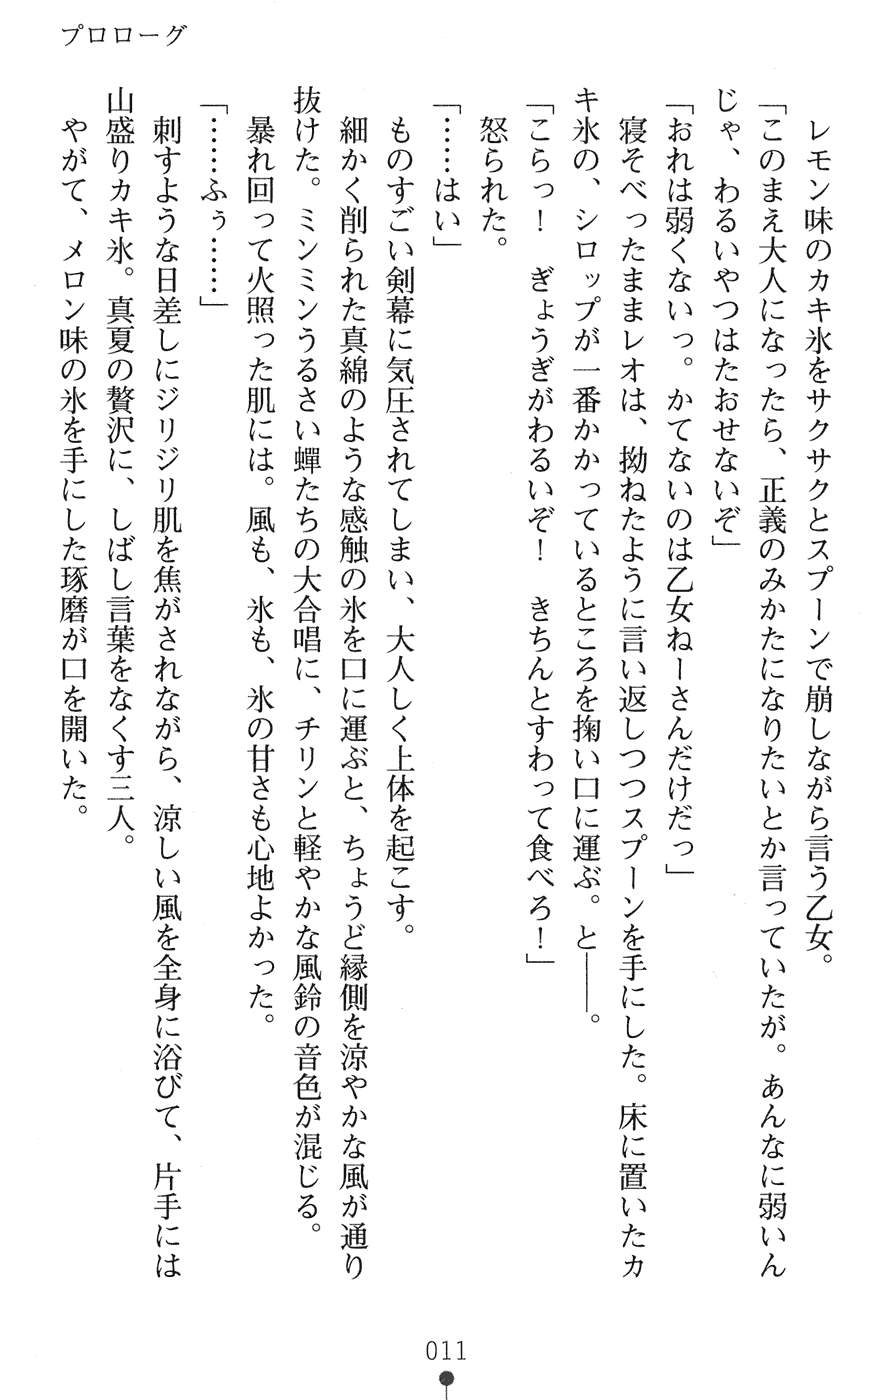 プロローグ
レモン味のカキ氷をサクサクとスプーンで崩しながら言う乙女。
「このまえ大人になったら、正義のみかたになりたいとか言っていたが。あんなに弱いん
じゃ、わるいやつはたおせないぞ」
「おれは弱くないっ。かてないのは乙女ねーさんだけだっ」
寝そべったままレオは、拗ねたように言い返しつつスプーンを手にした。床に置いたカ
キ氷の、シロップが一番かかっているところを掬い口に運ぶ。と――。
「こらっ！　ぎょうぎがわるいぞ！　きちんとすわって食べろ！」
怒られた。
「……はい」
ものすごい剣幕に気圧されてしまい、大人しく上体を起こす。
細かく削られた真綿のような感触の氷を口に運ぶと、ちょうど縁側を涼やかな風が通り
抜けた。ミンミンうるさい蟬たちの大合唱に、チリンと軽やかな風鈴の音色が混じる。
暴れ回って火照った肌には。風も、氷も、氷の甘さも心地よかった。
「……ふぅ……」
刺すような日差しにジリジリ肌を焦がされながら、涼しい風を全身に浴びて、片手には
山盛りカキ氷。真夏の贅沢に、しばし言葉をなくす三人。
やがて、メロン味の氷を手にした琢磨が口を開いた。
011